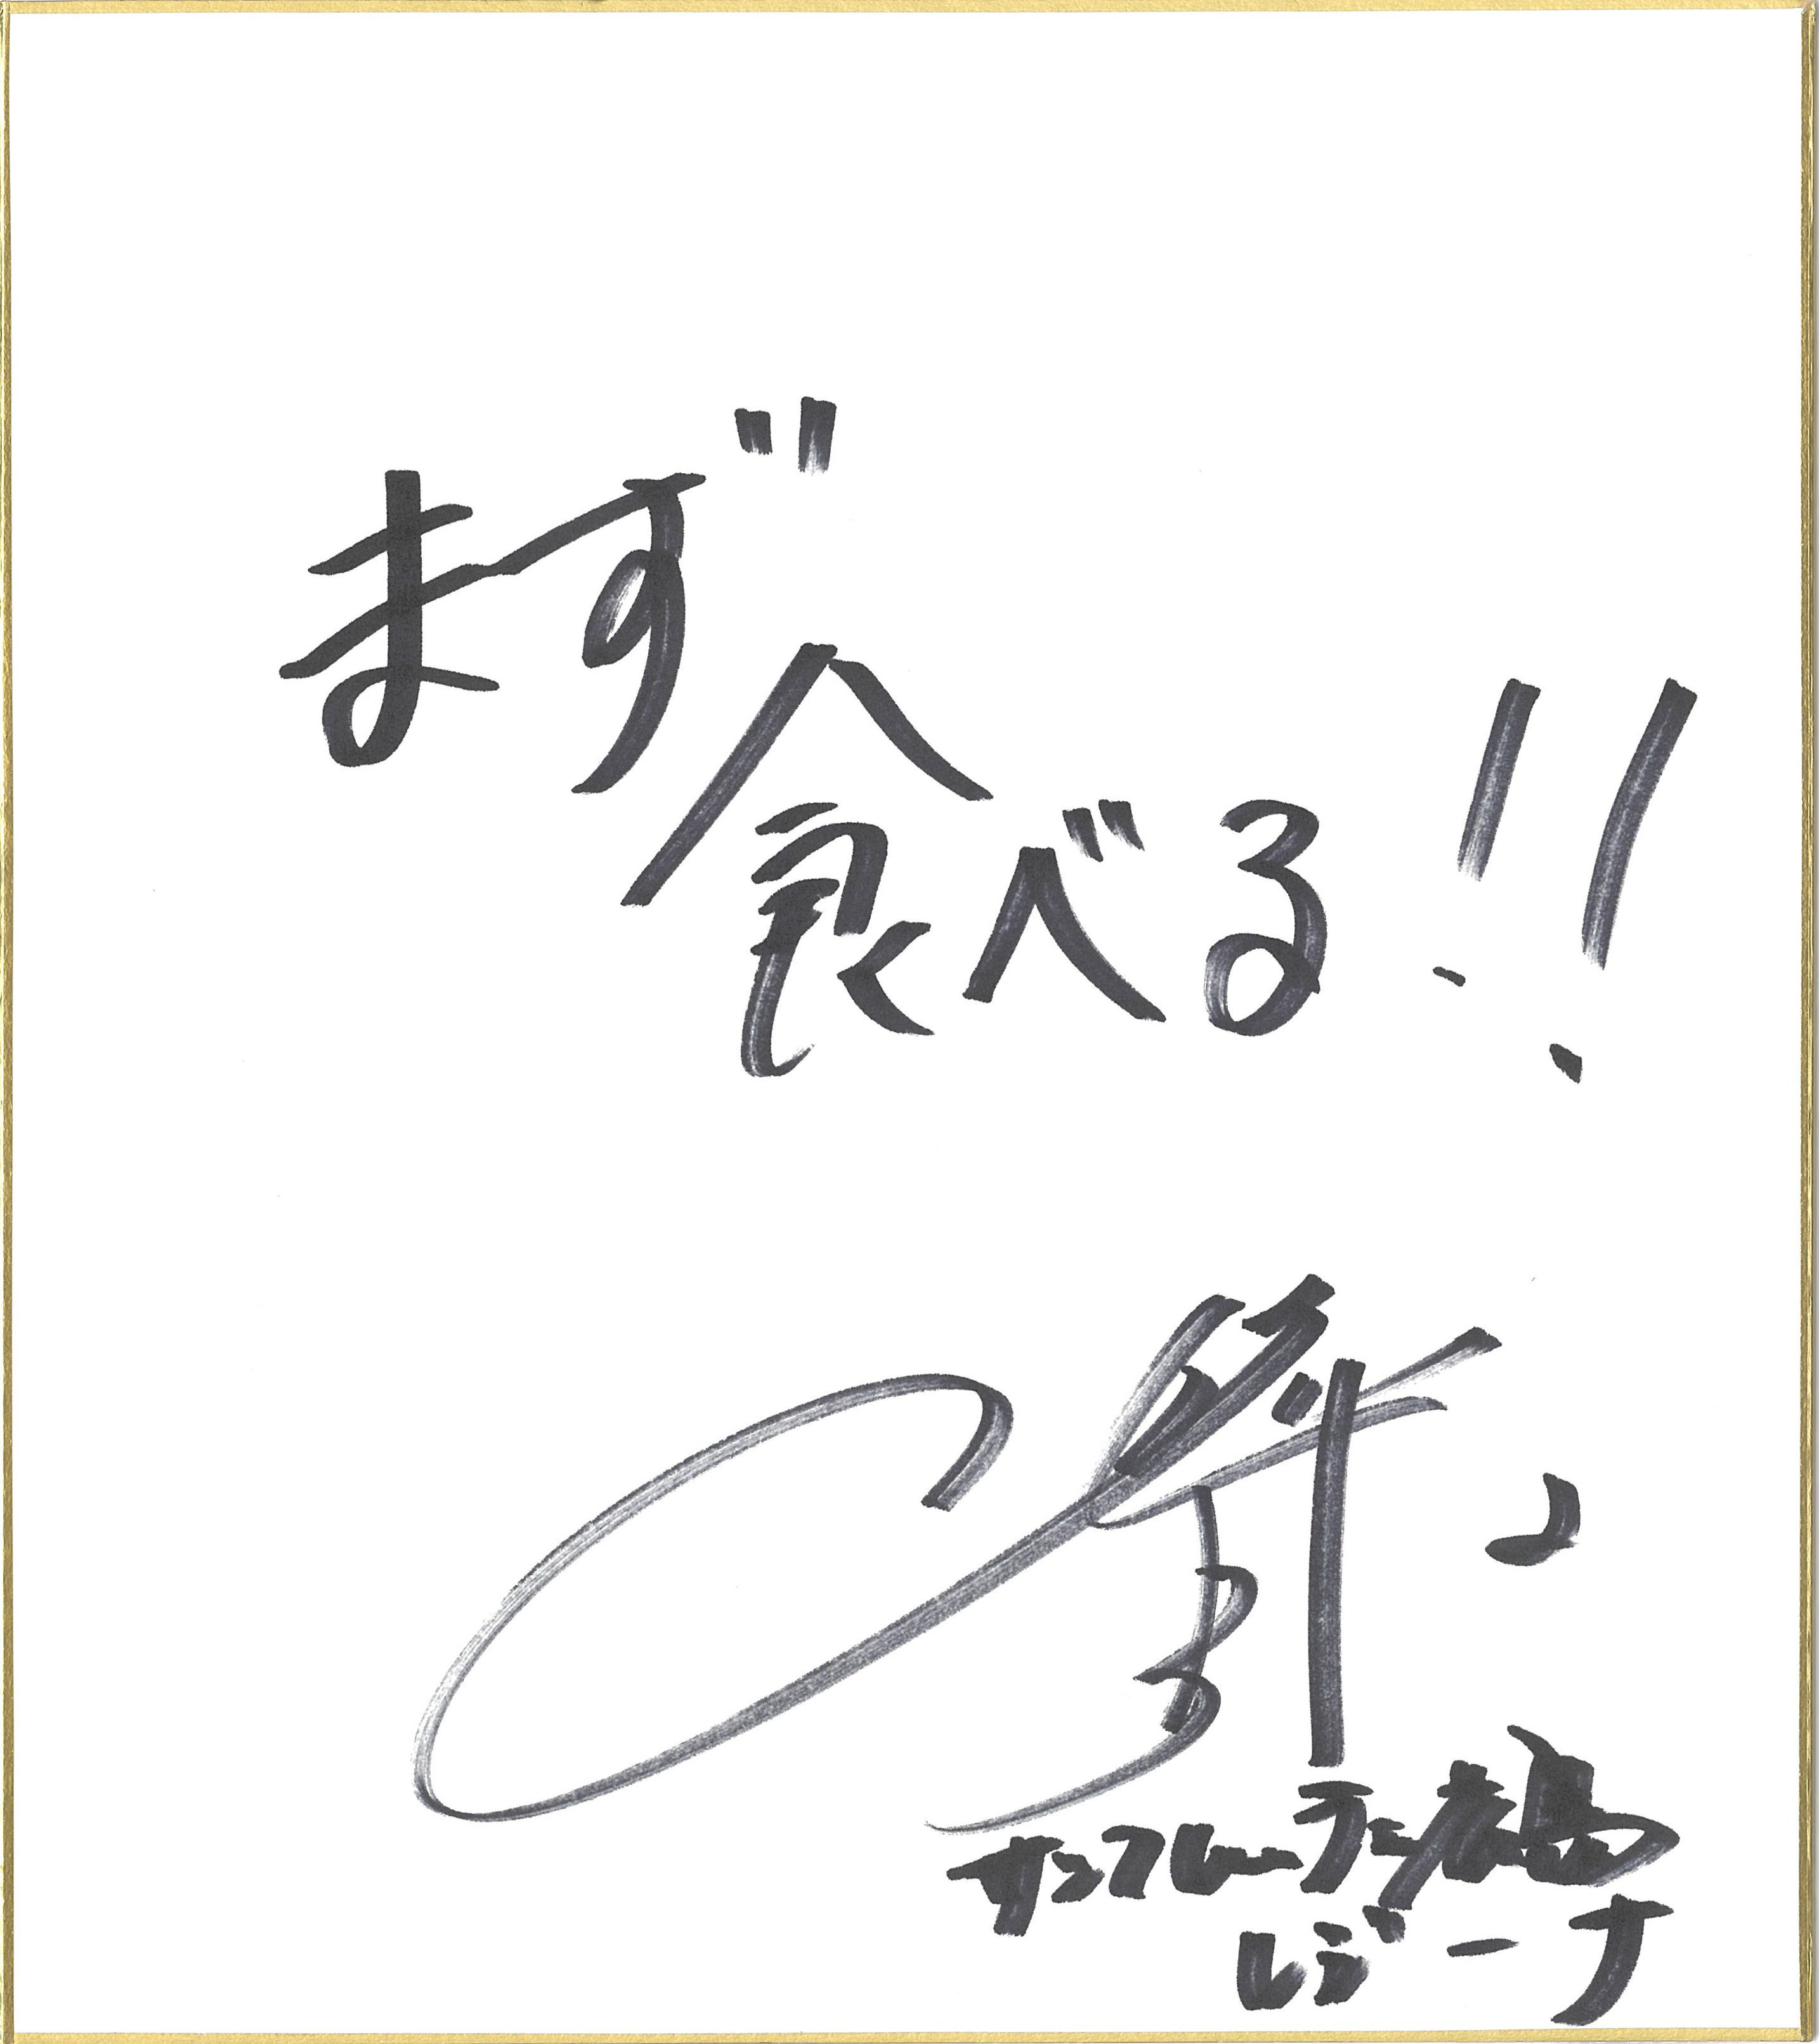 まず
食べる!!
サンフレッチェ広島
レジーナ